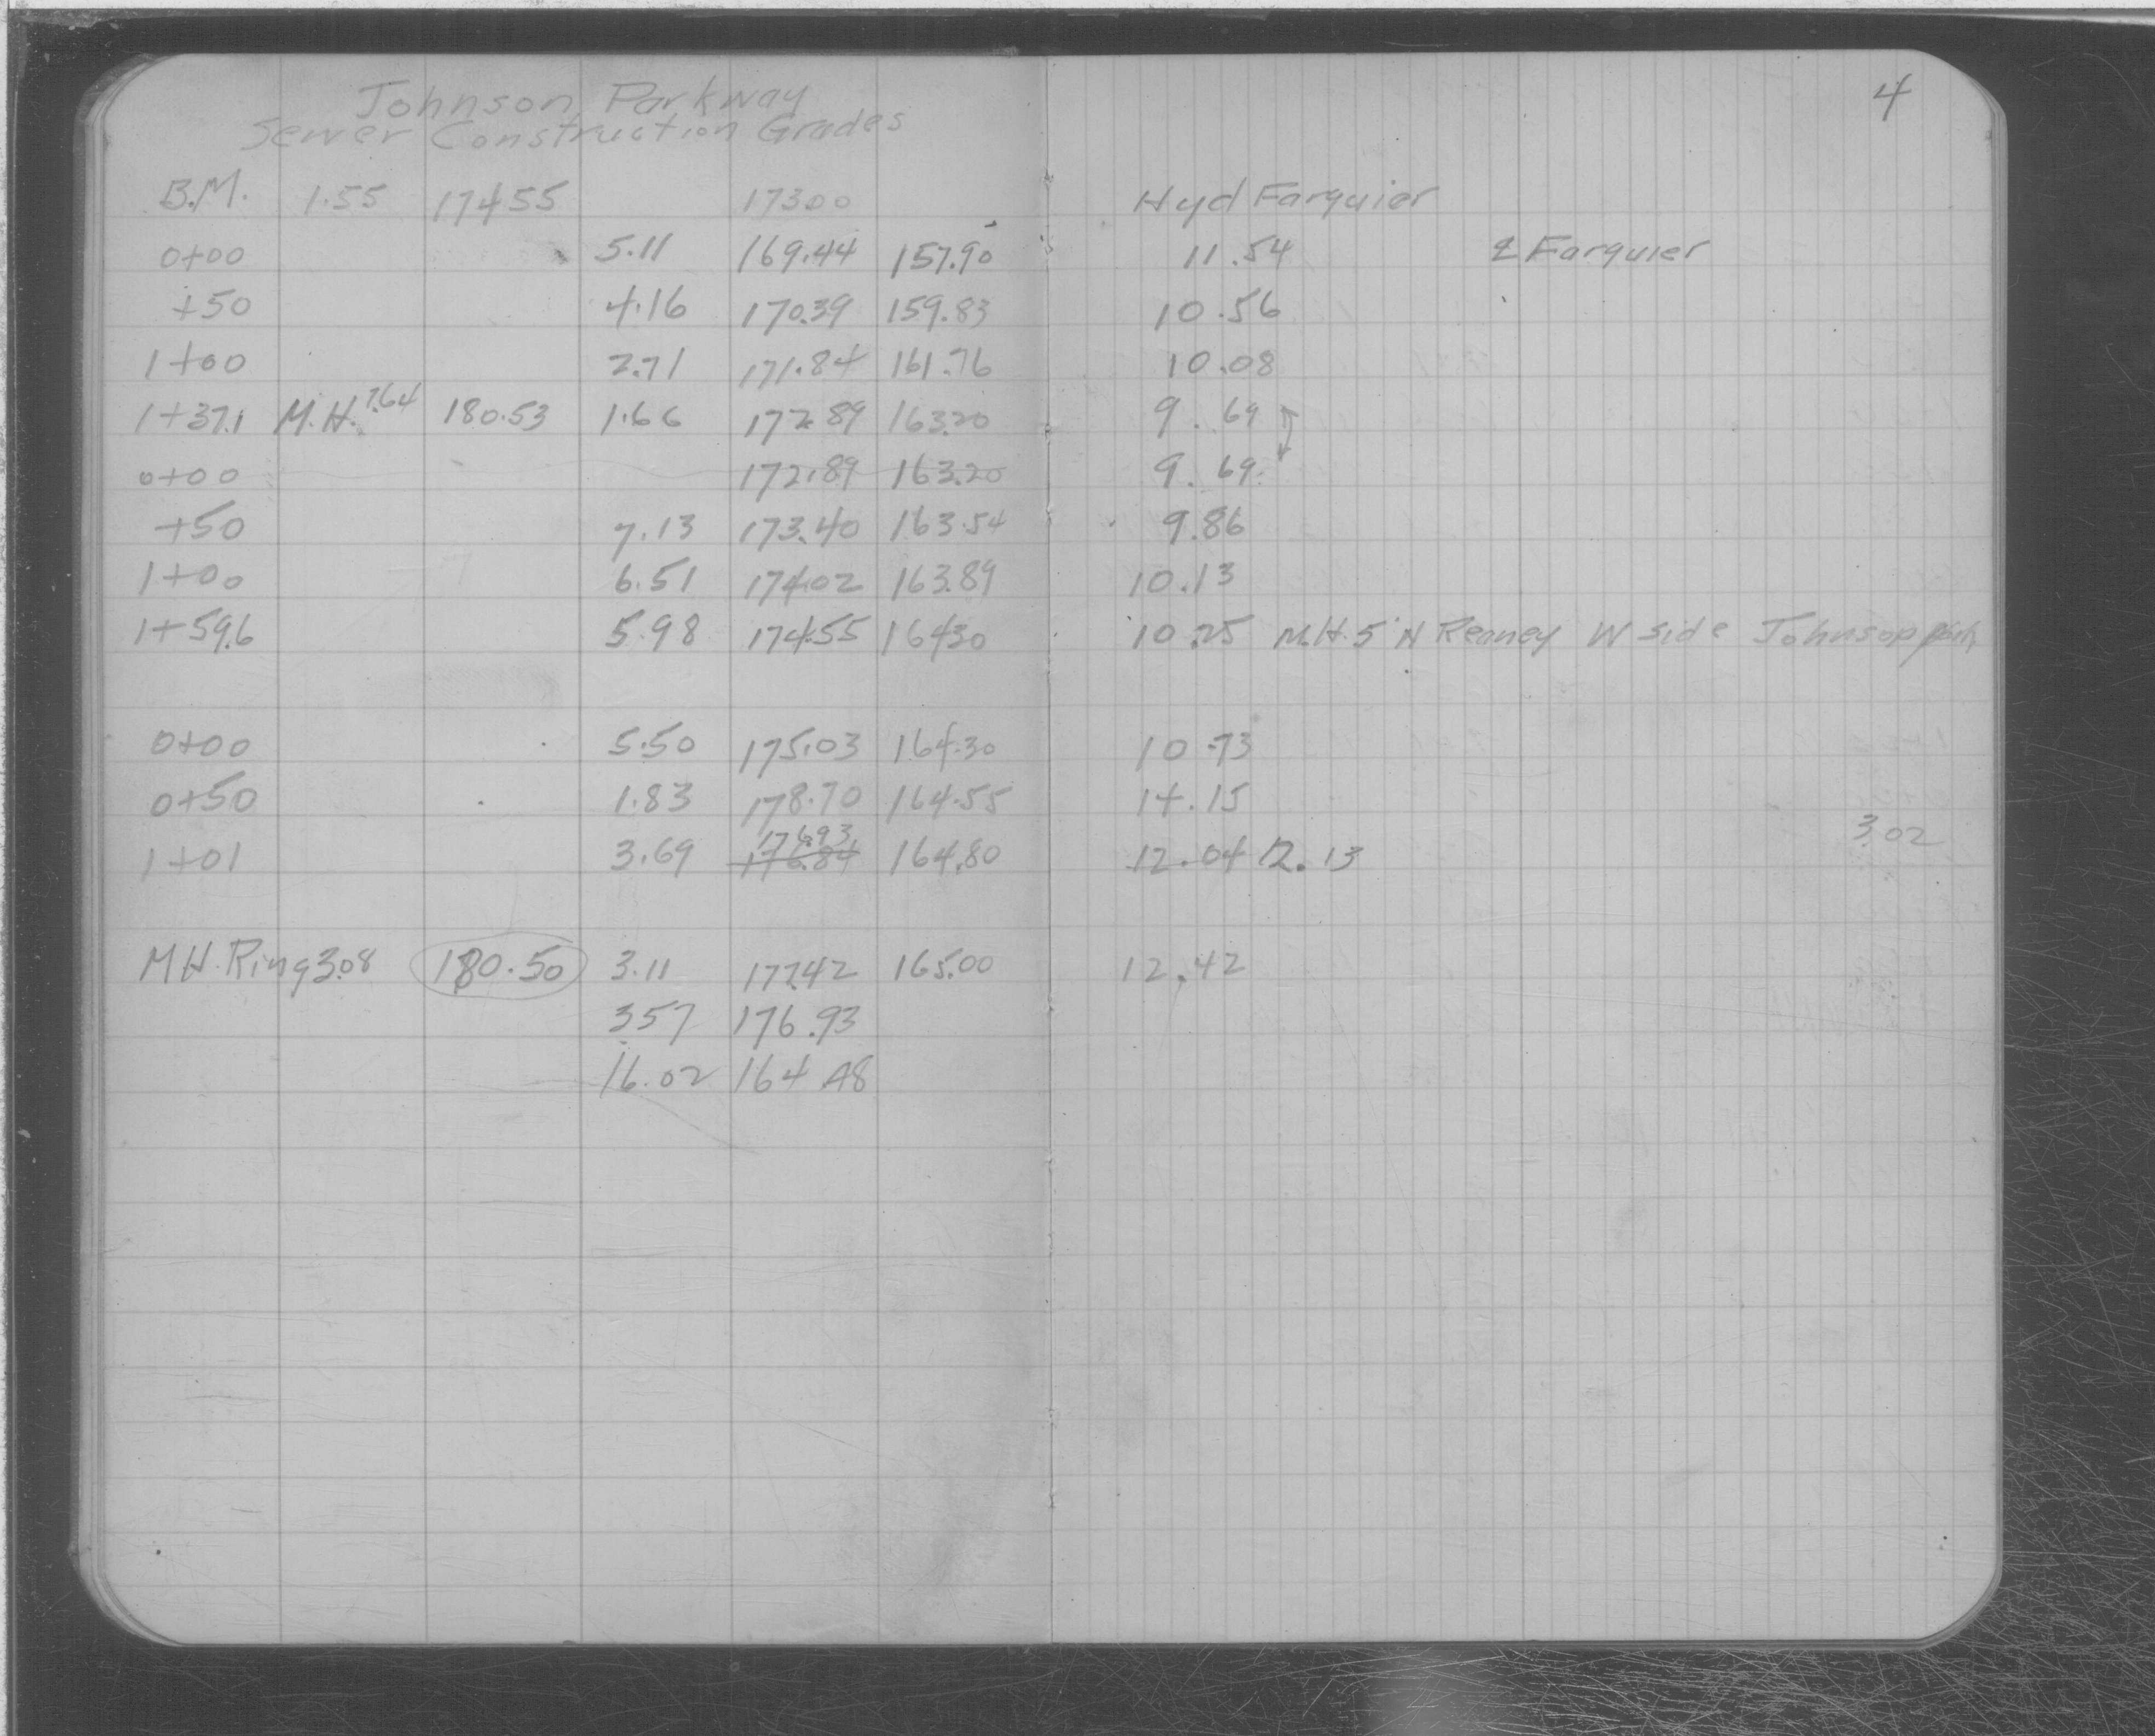 4
Johnson Parkway
Sewer Construction Grades
B.M. 1.55 174.55 173.00 Hyd Farquier
0+00 5.11 169.44 157.90 11.54 ℄ Farquier
+50 4.16 170.39 159.83 10.56
1+00 2.71 171.84 161.76 10.08
1+37.1 M.H. 7.64 180.53 1.66 172.89 163.20 9.69
0+00 172.89 163.20 9.69
+50 7.13 173.40 163.54 9.86
1+00 6.51 174.02 163.89 10.13
1+59.6 5.98 174.55 164.30 10.25 M.H. 5' N Reaney W side Johnson
0+00 5.50 175.03 164.30 10.73
0+50 1.83 178.70 164.55 14.15
176.93 3.02
1+01 3.69 176.84 164.80 12.04 12.13
M.H. Ring 3.08 180.50 3.11 177.42 165.00 12.42
3.57 176.93
16.02 164.48